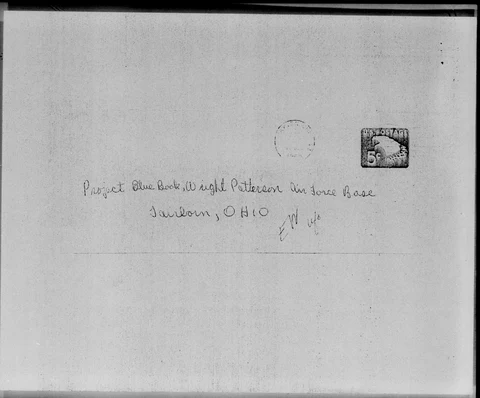 U.S. POSTAGE
5¢
Project Blue Book, Wright Patterson Air Force Base
Fairborn, OHIO